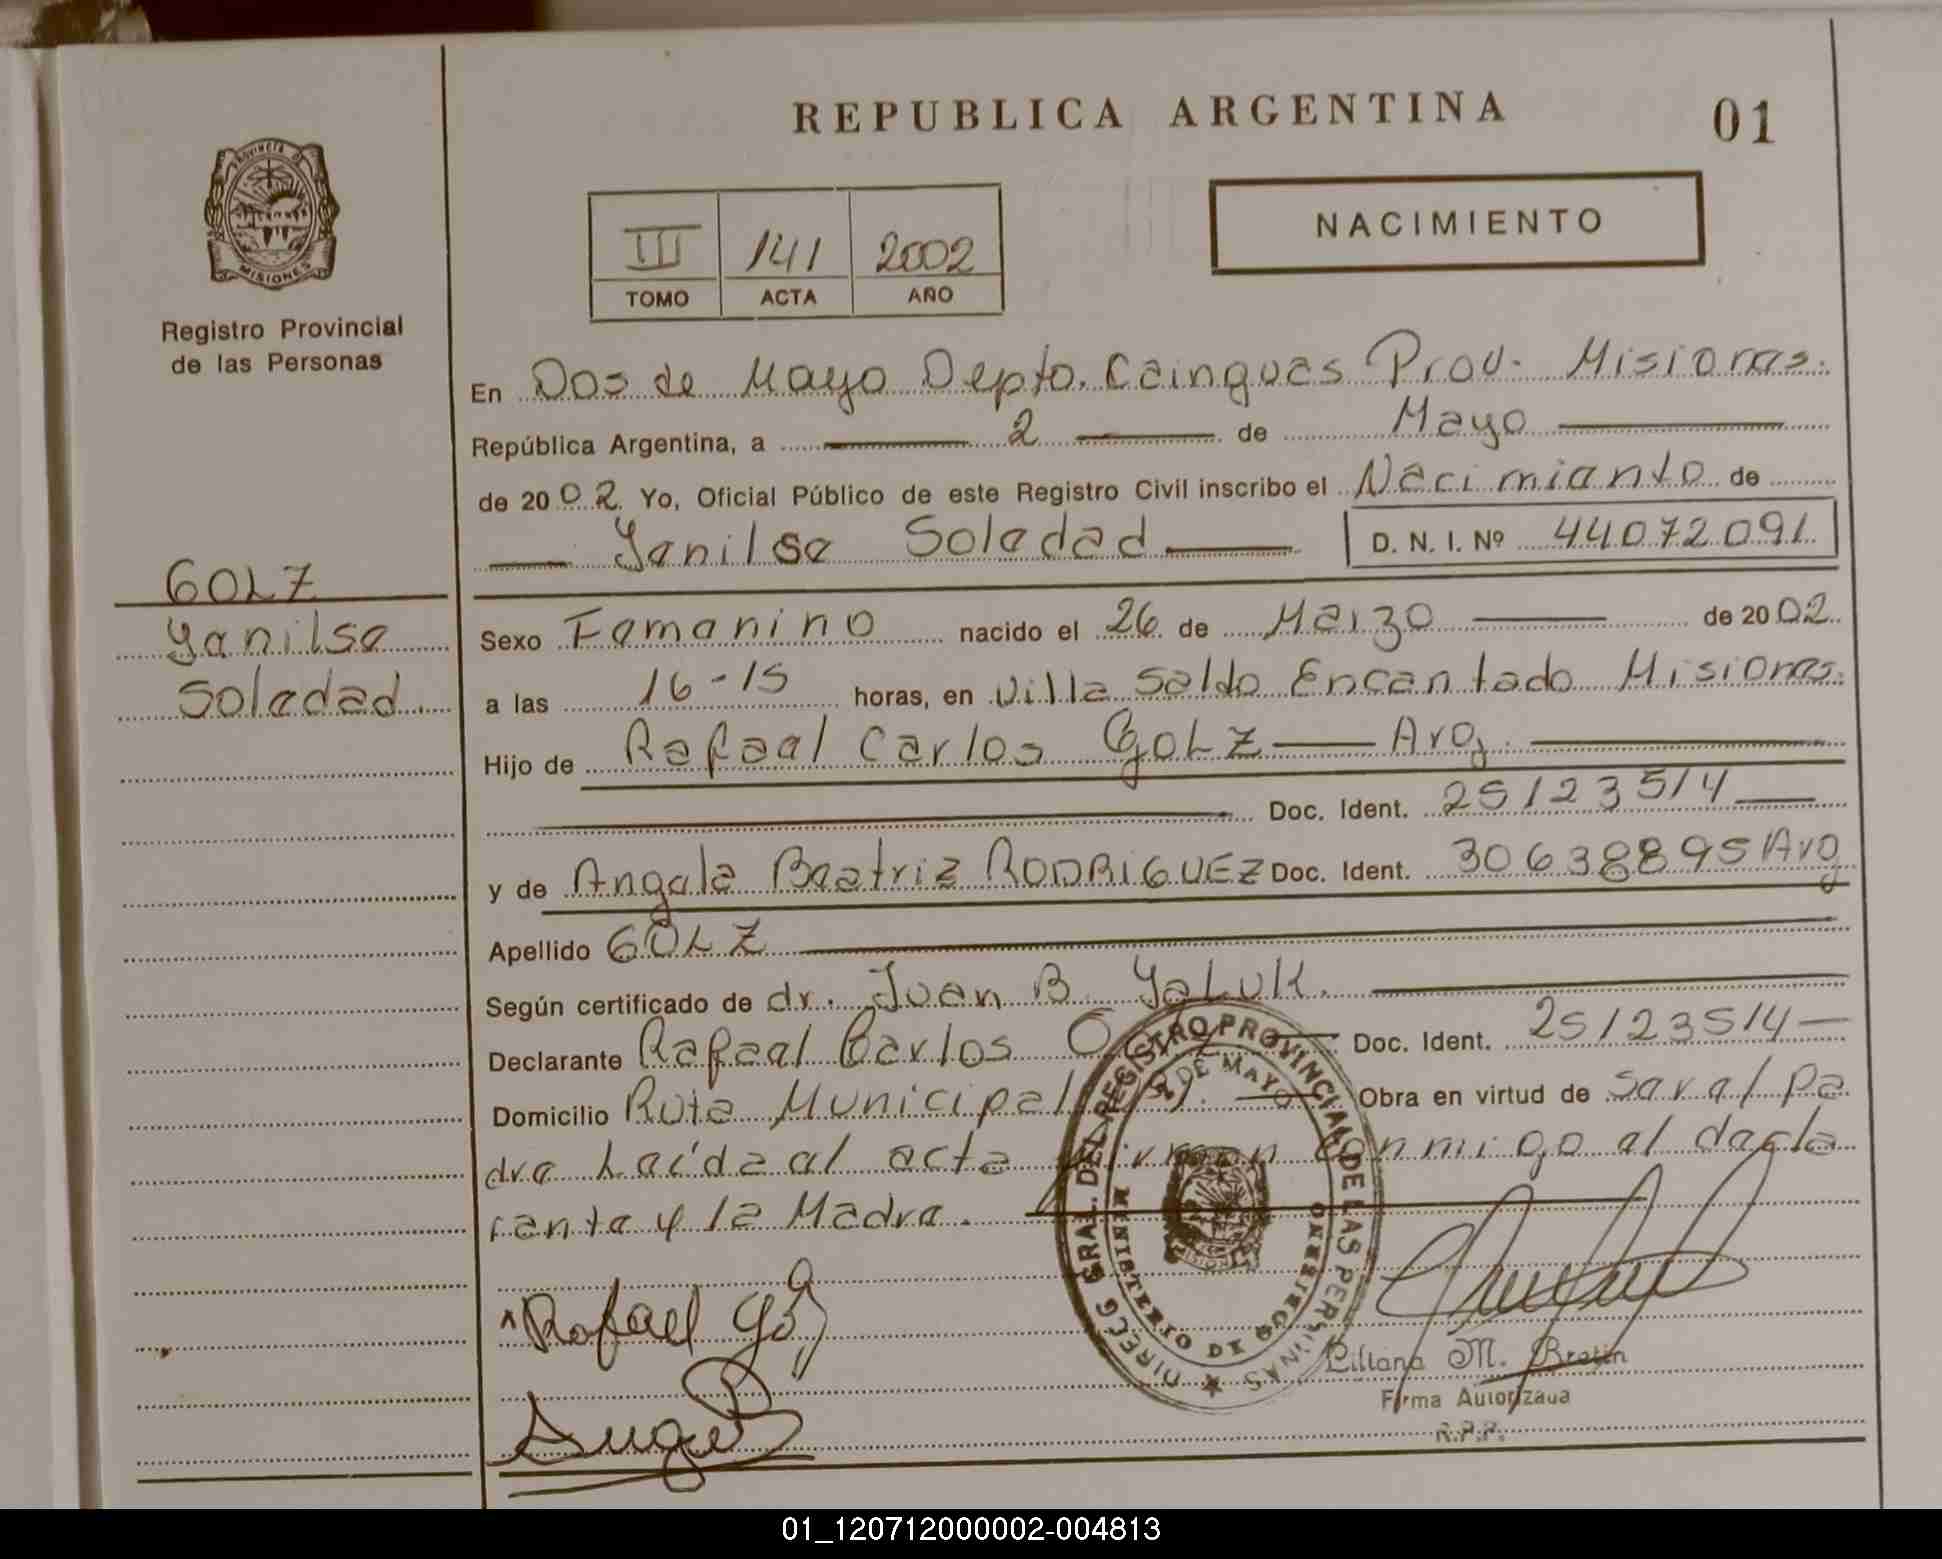 REPUBLICA ARGENTINA
01
PROVINCIA DE
MISIONES
Registro Provincial
de las Personas
III 141 2002
TOMO ACTA AÑO
NACIMIENTO
En Dos de Mayo Depto. Cainguas Prov. Misiones.
República Argentina, a 2 de Mayo
de 2002 Yo, Oficial Público de este Registro Civil inscribo el Nacimiento de
Yanilse Soledad D. N. I. Nº 44072091
GOLZ
Yanilse
Soledad.
Sexo Femenino nacido el 26 de Marzo de 2002
a las 16-15 horas, en Villa Salto Encantado Misiones.
Hijo de Rafael Carlos GOLZ Arg.
Doc. Ident. 25123514
y de Angela Beatriz RODRIGUEZ Doc. Ident. 30638895 Arg
Apellido GOLZ
Según certificado de dr. Juan B. YaLuk.
Declarante Rafael Carlos Doc. Ident. 25123514
Domicilio Ruta Municipal Obra en virtud de ser el pa
dre Leída el acta firman conmigo el decla
rente y la Madre.
DIRECC. GRAL. DEL REGISTRO PROVINCIAL DE LAS PERSONAS
2 DE MAYO
MINISTERIO DE GOBIERNO
Rafael
Liliana M. Bretin
Firma Autorizada
R.P.P.
01_120712000002-004813